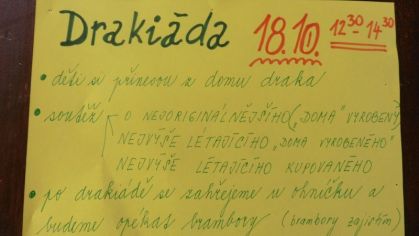 Drakiáda 18.10. 12³⁰ - 14³⁰
• děti si přinesou z domu draka
• soutěž O NEJORIGINÁLNĚJŠÍHO („DOMA“ VYROBENÝ)
NEJVÝŠE LÉTAJÍCÍHO „DOMA VYROBENÉHO“
NEJVÝŠE LÉTAJÍCÍHO KUPOVANÉHO
• po drakiádě se zahřejeme u ohníčku a
budeme opékat brambory (brambory zajistím)